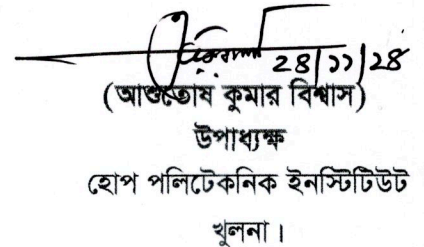 ২৪/১১/২৪
(আশুতোষ কুমার বিশ্বাস)
উপাধ্যক্ষ
হোপ পলিটেকনিক ইনস্টিটিউট
খুলনা।